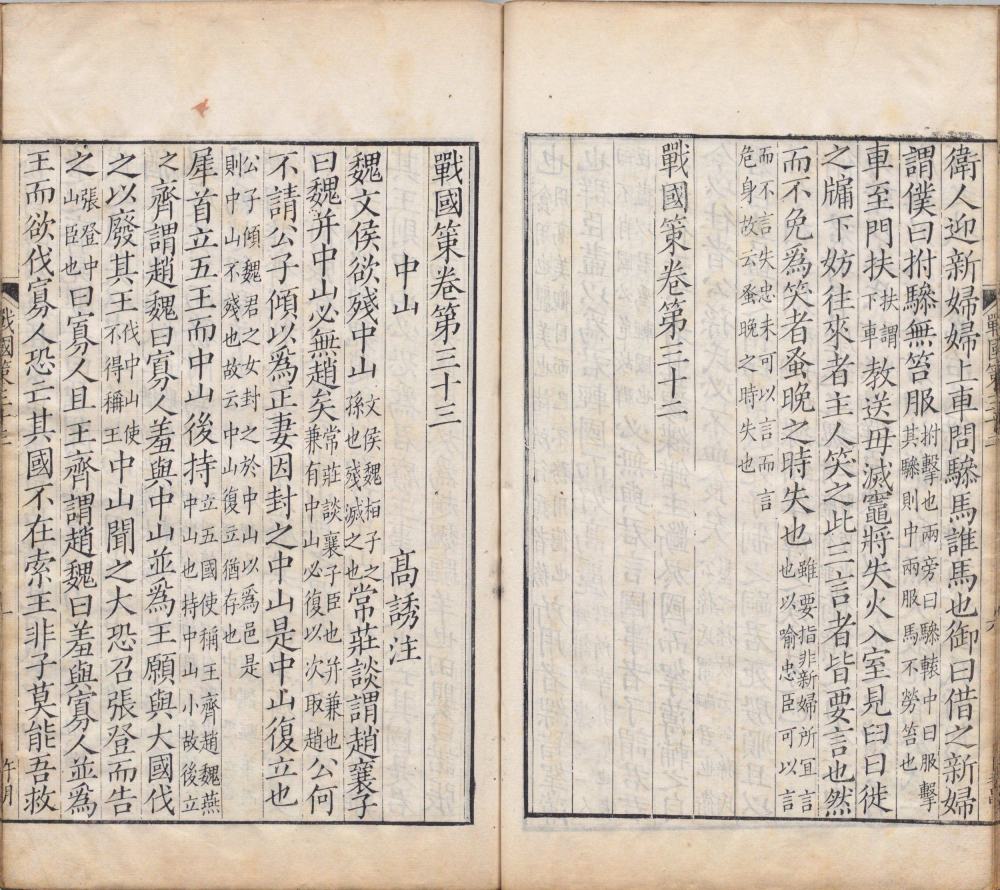 衛人迎新婦婦上車問驂馬誰馬也御曰借之新婦
謂僕曰拊驂無笞服拊擊也兩旁曰驂轅中曰服擊其驂則中兩服馬不勞笞也
車至門扶扶謂下車教送毋滅竈將失火入室見臼曰徙
之牖下妨往來者主人笑之此三言者皆要言也然
而不免為笑者蚤晚之時失也雖要指非新婦所宜言也以喻忠臣可以言
而不言失忠未可以言而言危身故云蚤晚之時失也
戰國策卷第三十二
戰國策卷第三十三
中山 高誘注
魏文侯欲殘中山文侯魏桓子之孫也殘滅之也常莊談謂趙襄子
曰魏并中山必無趙矣常莊談襄子臣也并兼也兼有中山必復以次取趙公何
不請公子傾以為正妻因封之中山是中山復立也
公子傾魏君之女封之於中山以為邑是則中山不殘也故云中山復立猶存也
犀首立五王而中山後持立五國使稱王齊趙魏燕中山也持中山小故後立
之齊謂趙魏曰寡人羞與中山並為王願與大國伐
之以廢其王伐中山使不得稱王中山聞之大恐召張登而告
之張登中山臣也曰寡人且王齊謂趙魏曰羞與寡人並為
王而欲伐寡人恐亡其國不在索王非子莫能吾救
戰國策三十三
一